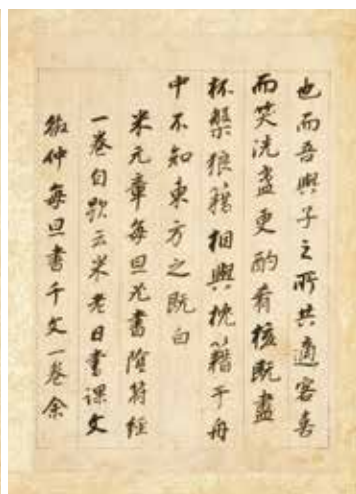 也而吾與子之所共適客喜
而笑洗盞更酌肴核既盡
杯槃狼籍相與枕籍乎舟
中不知東方之既白
米元章每旦必書陰符經
一卷自跋云米老日書課文
徵仲每旦書千文一卷余